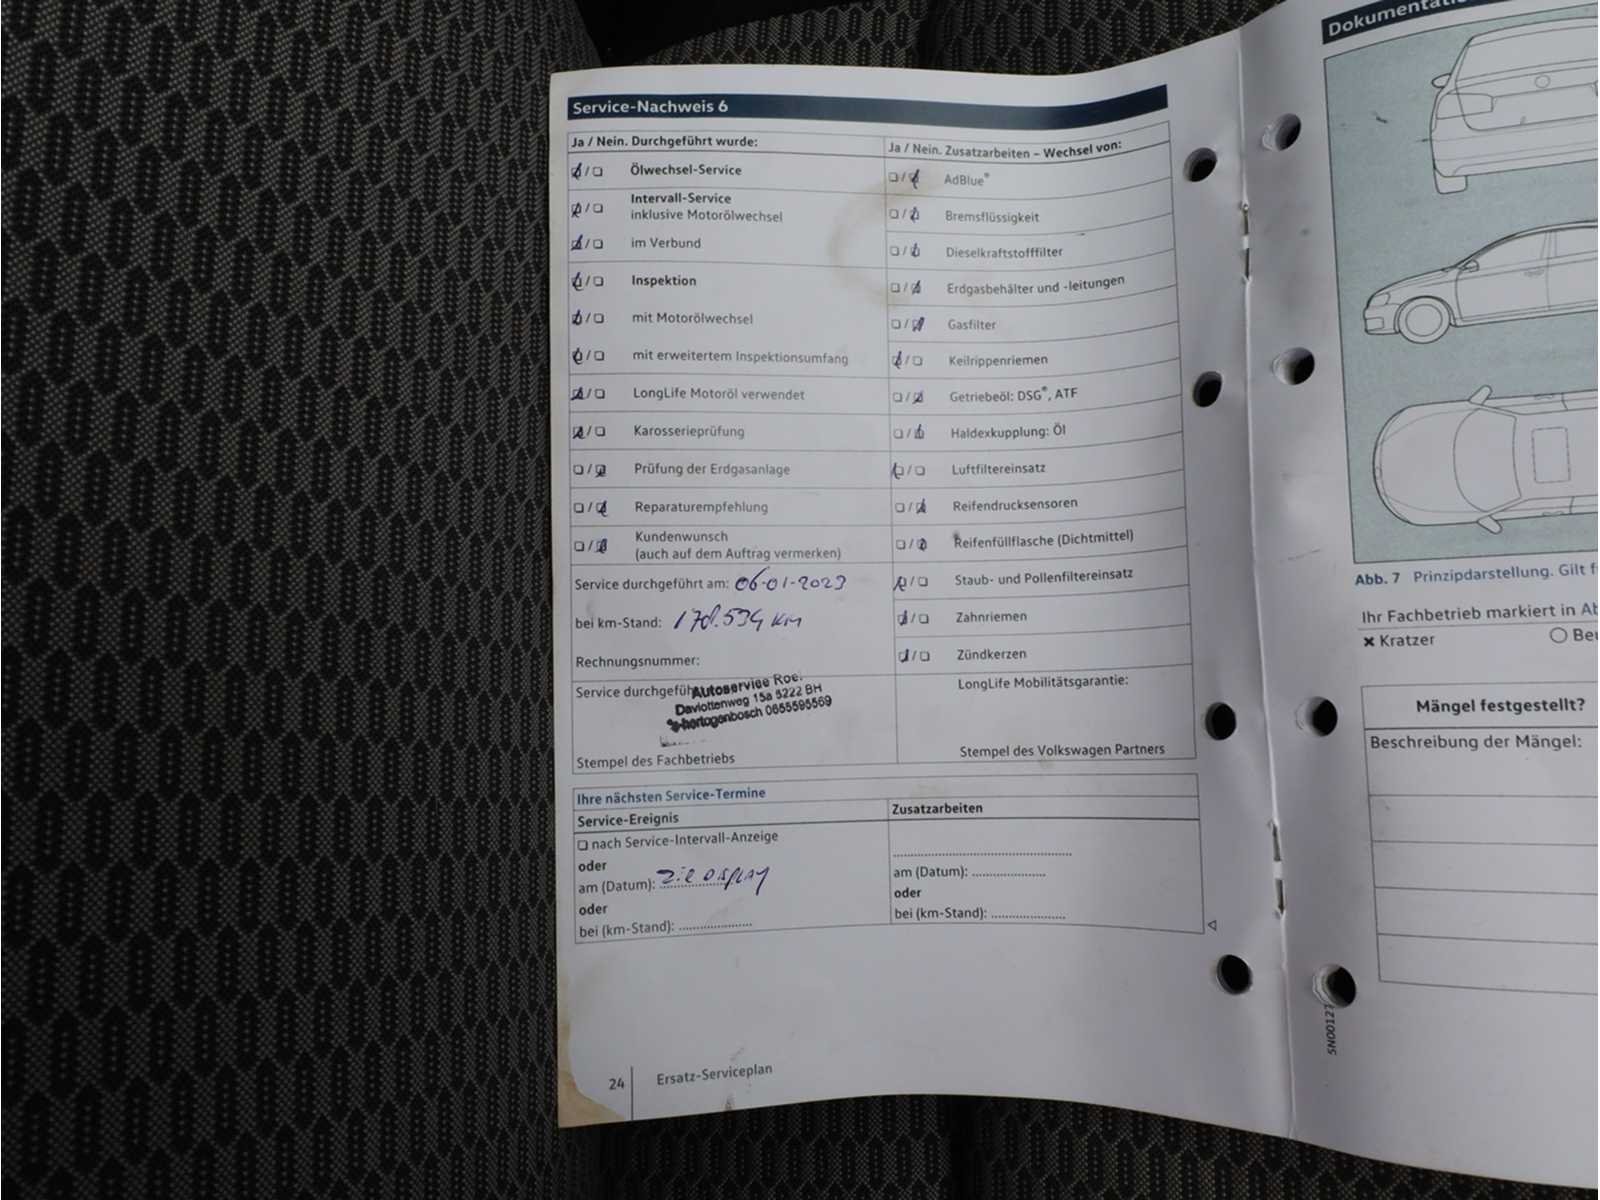 Service-Nachweis 6
Ja / Nein. Durchgeführt wurde:
Ölwechsel-Service
Intervall-Service
inklusive Motorölwechsel
im Verbund
Inspektion
mit Motorölwechsel
mit erweitertem Inspektionsumfang
LongLife Motoröl verwendet
Karosserieprüfung
Prüfung der Erdgasanlage
Reparaturempfehlung
Kundenwunsch
(auch auf dem Auftrag vermerken)
Service durchgeführt am: 06-01-2023
bei km-Stand: 178.534 km
Rechnungsnummer:
Service durchgefüh
Autoservice Roel
Daviottenweg 15a 5222 BH
's-hertogenbosch 0655595569
Stempel des Fachbetriebs
Ja / Nein. Zusatzarbeiten – Wechsel von:
AdBlue®
Bremsflüssigkeit
Dieselkraftstofffilter
Erdgasbehälter und -leitungen
Gasfilter
Keilrippenriemen
Getriebeöl: DSG®, ATF
Haldexkupplung: Öl
Luftfiltereinsatz
Reifendrucksensoren
Reifenfüllflasche (Dichtmittel)
Staub- und Pollenfiltereinsatz
Zahnriemen
Zündkerzen
LongLife Mobilitätsgarantie:
Stempel des Volkswagen Partners
Ihre nächsten Service-Termine
Service-Ereignis
nach Service-Intervall-Anzeige
oder
am (Datum): zie display
oder
bei (km-Stand): ....................
Zusatzarbeiten
am (Datum): ....................
oder
bei (km-Stand): ....................
24
Ersatz-Serviceplan
Dokumentatio
Abb. 7 Prinzipdarstellung. Gilt f
Ihr Fachbetrieb markiert in Ab
Kratzer
Beu
Mängel festgestellt?
Beschreibung der Mängel:
5N0012